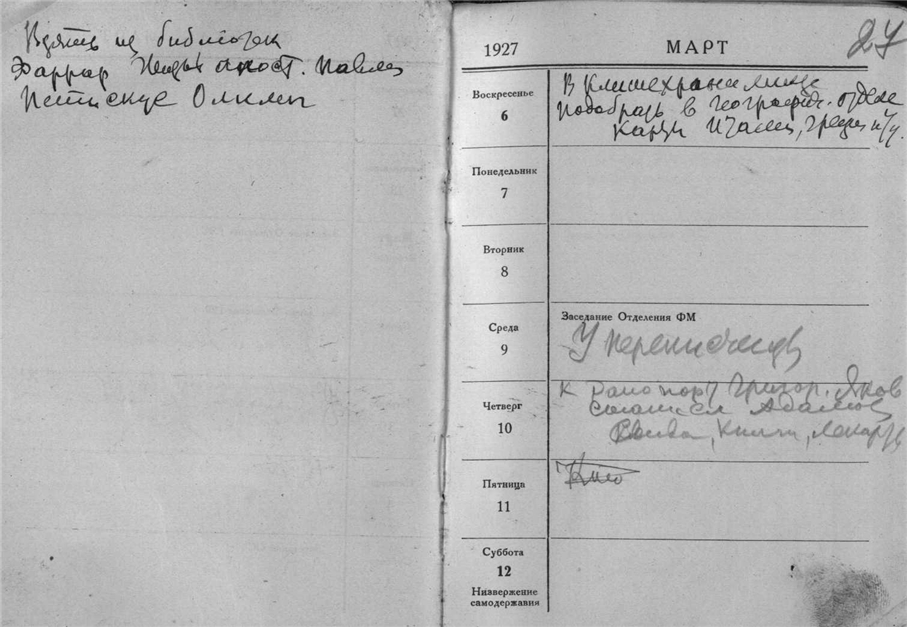 Взять из библиотек
Фаррар Жизнь апост. Павла
Петискус Олимп
27
1927 МАРТ
Воскресенье
6
В Клишехранилище
подобрать в географич. отделе
Карты Италии, Греции и
Понедельник
7
Вторник
8
Среда
9
Заседание Отделения ФМ
У переписчицы
Четверг
10
К Григор. Яков
Адамов
Книги, лекарств
Пятница
11
Суббота
12
Низвержение
самодержавия